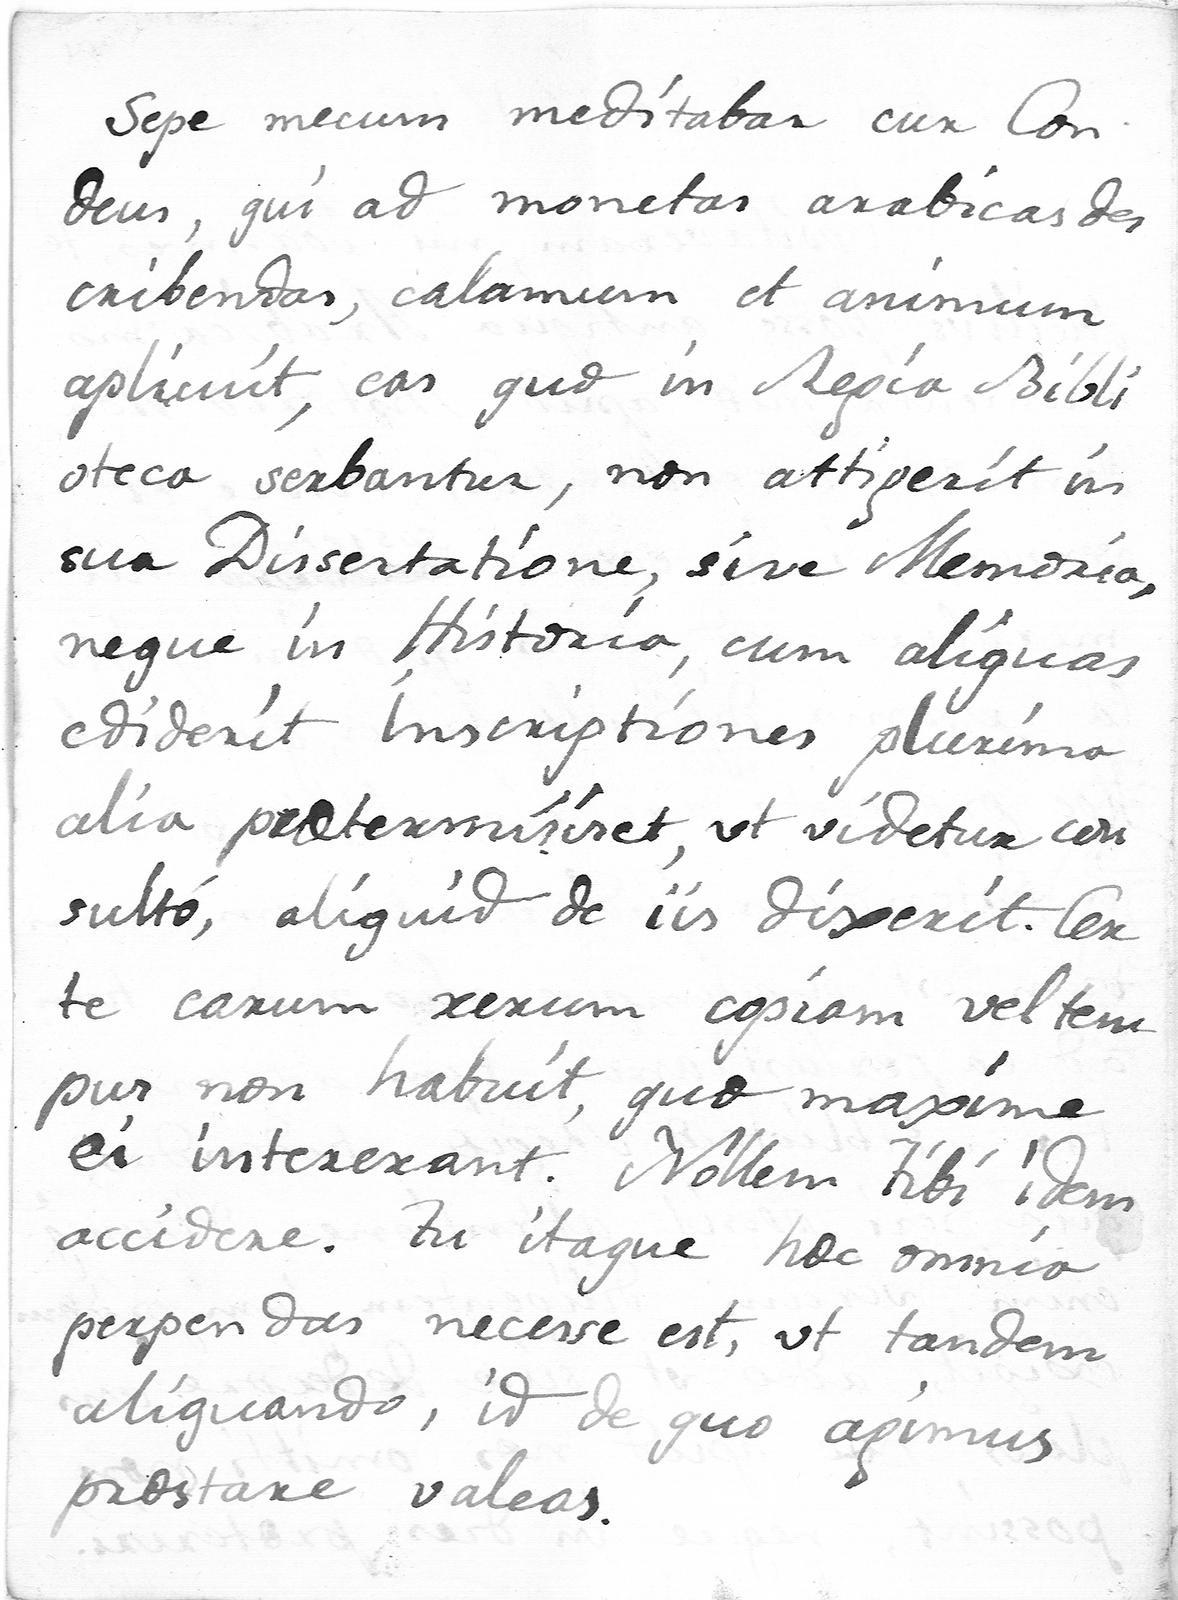 Sepe mecum meditabar cur Con
deus, qui ad monetas arabicas des
cribendas, calamum et animum
aplicuit, eas quæ in Regia Bibli
oteca serbantur, non attigerit in
sua Dissertatione, sive Memoria,
neque in Historia, cum aliquas
ediderit inscriptiones plurima
alia prætermisiset, ut videtur con
sultó, aliquid de iis dixerit. Cer
te earum rerum copiam vel tem
pus non habuit, quæ maxime
ei intererant. Nollem tibi idem
accidere. Tu itaque hæc omnia
perpendas necesse est, ut tandem
aliquando, id de quo agimus
præstare valeas.